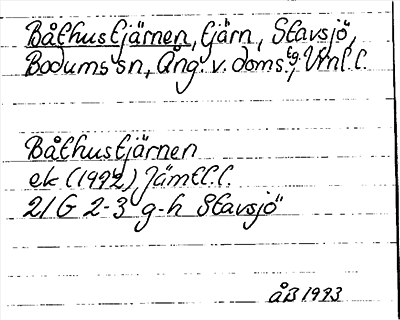 Båthustjärnen, tjärn, Stavsjö,
Bodums sn, Ång. v. doms. tg, Vnl. l.
Båthustjärnen
ek (1992), Jämtl. l.
21 G 2-3 g-h Stavsjö
ÅB 1993